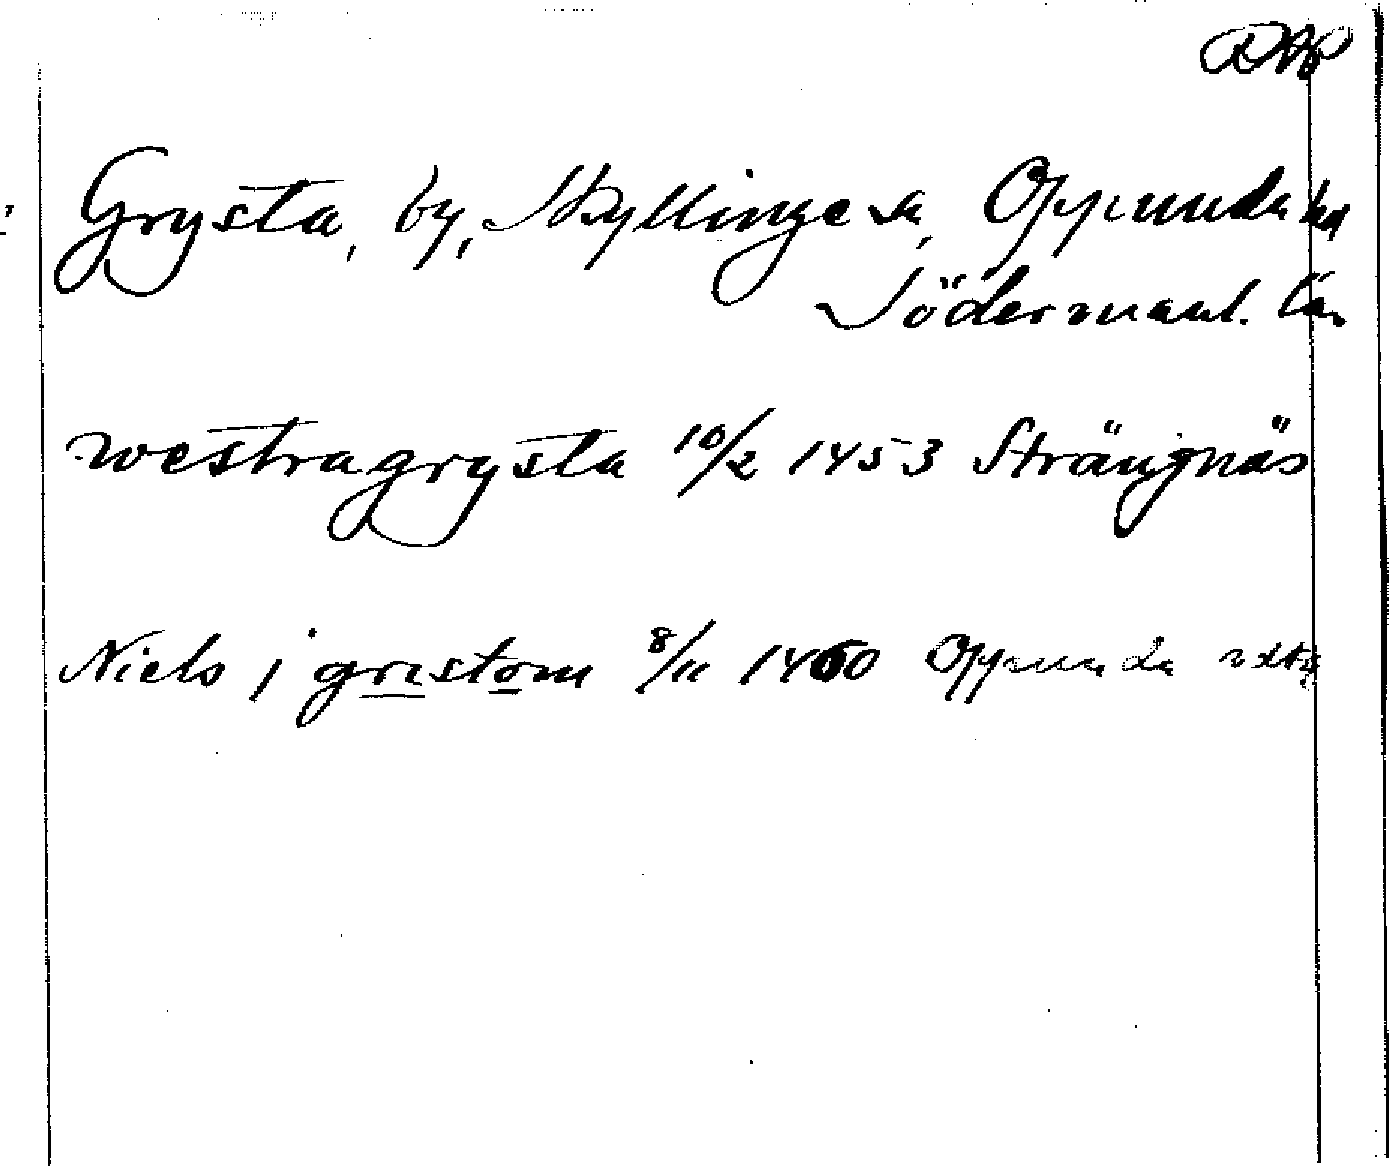 DAP
Grysta, by, Skyllinge sn, Oppunda hd
Södermanl. län
westragrysta 10/2 1453 Strängnäs
Niels j grestom 8/11 1460 Oppunda